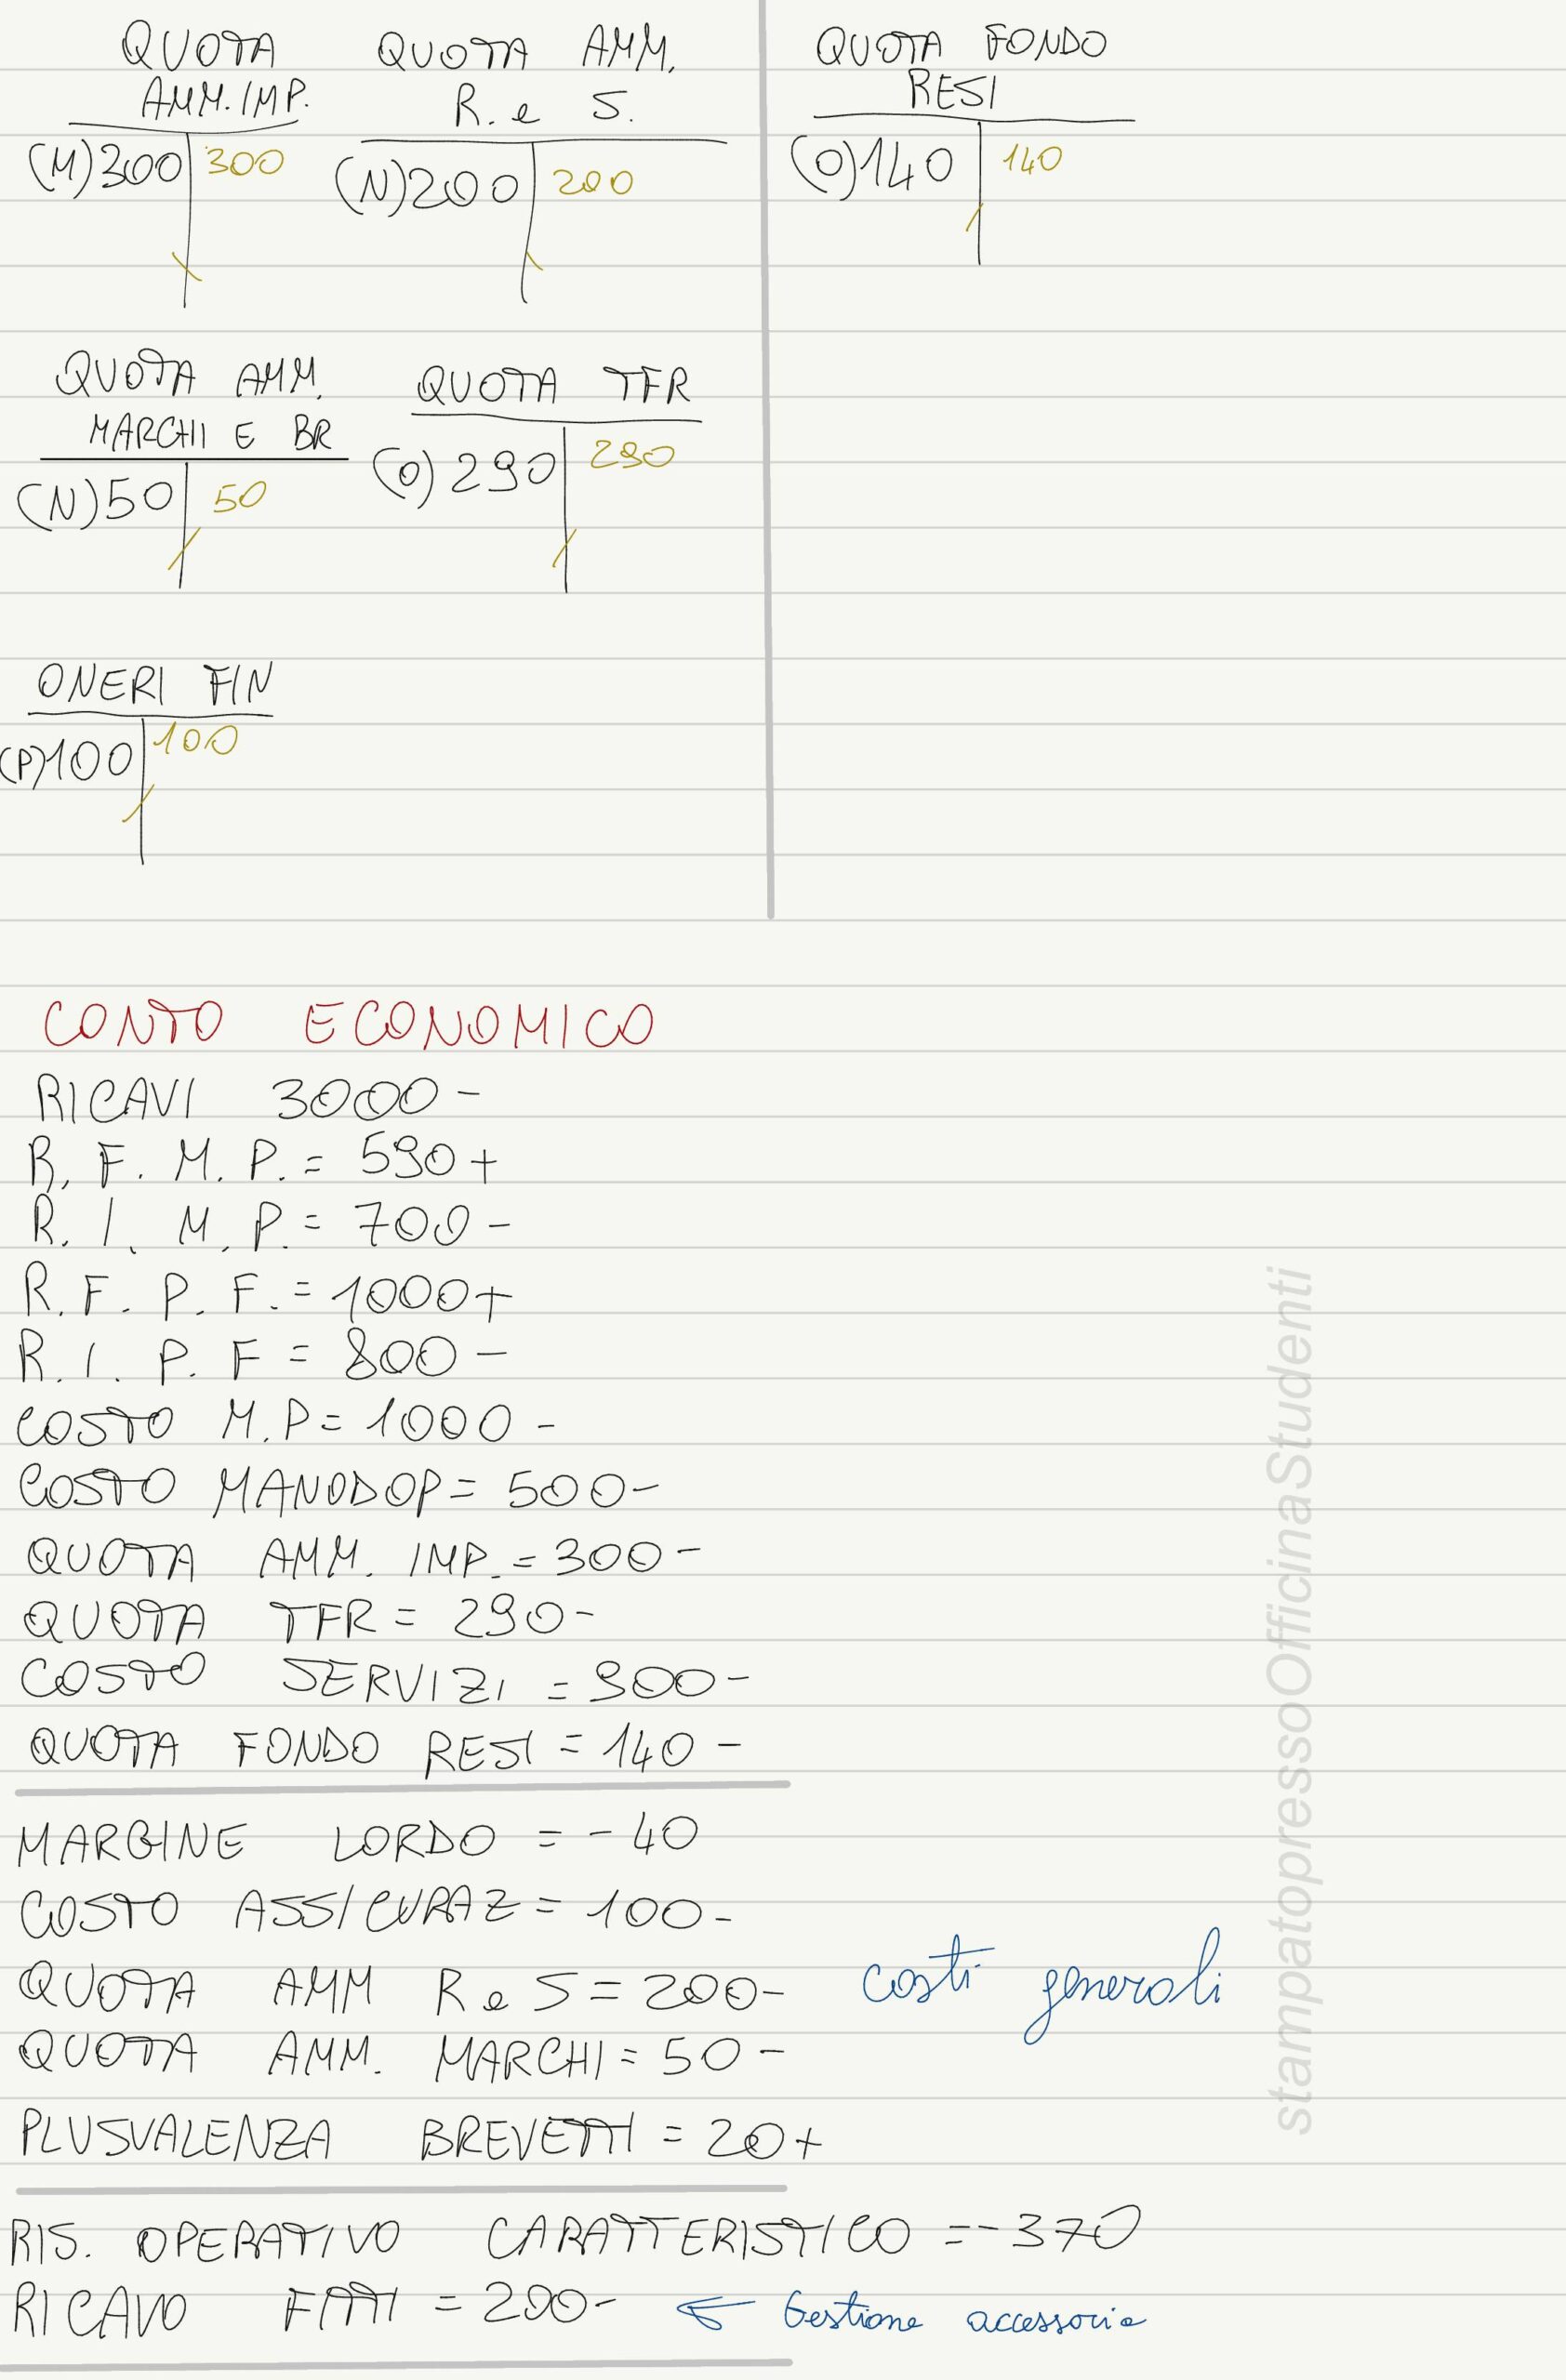 QUOTA
AMM. IMP.
(M) 300 300
QUOTA AMM.
R. e S.
(N) 200 200
QUOTA FONDO
RESI
(O) 140 140
QUOTA AMM.
MARCHI E BR
(N) 50 50
QUOTA TFR
(O) 290 290
ONERI FIN
(P) 100 100
CONTO ECONOMICO
RICAVI 3000 -
R. F. M. P. = 590 +
R. I. M. P. = 700 -
R. F. P. F. = 1000 +
R. I. P. F = 800 -
COSTO M.P = 1000 -
COSTO MANODOP = 500 -
QUOTA AMM. IMP. = 300 -
QUOTA TFR = 290 -
COSTO SERVIZI = 900 -
QUOTA FONDO RESI = 140 -
MARGINE LORDO = - 40
COSTO ASSICURAZ = 100 -
QUOTA AMM R e S = 200 - costi generali
QUOTA AMM. MARCHI = 50 -
PLUSVALENZA BREVETTI = 20 +
RIS. OPERATIVO CARATTERISTICO = - 370
RICAVO FITTI = 200 - ← Gestione accessoria
stampatopressoOfficinaStudenti